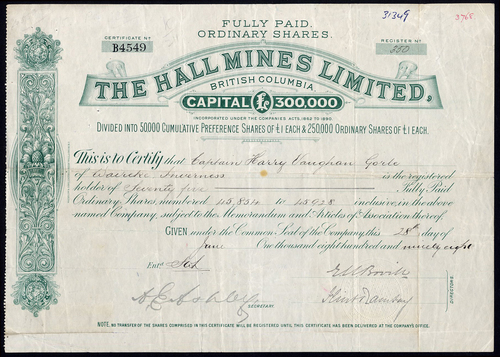 31349
3765
FULLY PAID.
ORDINARY SHARES.
CERTIFICATE No
B4549
REGISTER No
250
THE HALL MINES LIMITED,
BRITISH COLUMBIA
CAPITAL £ 300,000
INCORPORATED UNDER THE COMPANIES ACTS, 1862 TO 1890.
DIVIDED INTO 50,000 CUMULATIVE PREFERENCE SHARES OF £1 EACH & 250,000 ORDINARY SHARES OF £1 EACH.
This is to Certify that Captain Harry Vaughan
of Inverness is the registered
holder of Seventy five Fully Paid
Ordinary Shares numbered 45,854 to 45928 inclusive, in the above
named Company, subject to the Memorandum and Articles of Association thereof.
GIVEN under the Common Seal of the Company, this 28th day of
June One thousand eight hundred and ninety eight
Entd
A. E. Ashley
SECRETARY
DIRECTORS
NOTE. NO TRANSFER OF THE SHARES COMPRISED IN THIS CERTIFICATE WILL BE REGISTERED UNTIL THIS CERTIFICATE HAS BEEN DELIVERED AT THE COMPANY'S OFFICE.